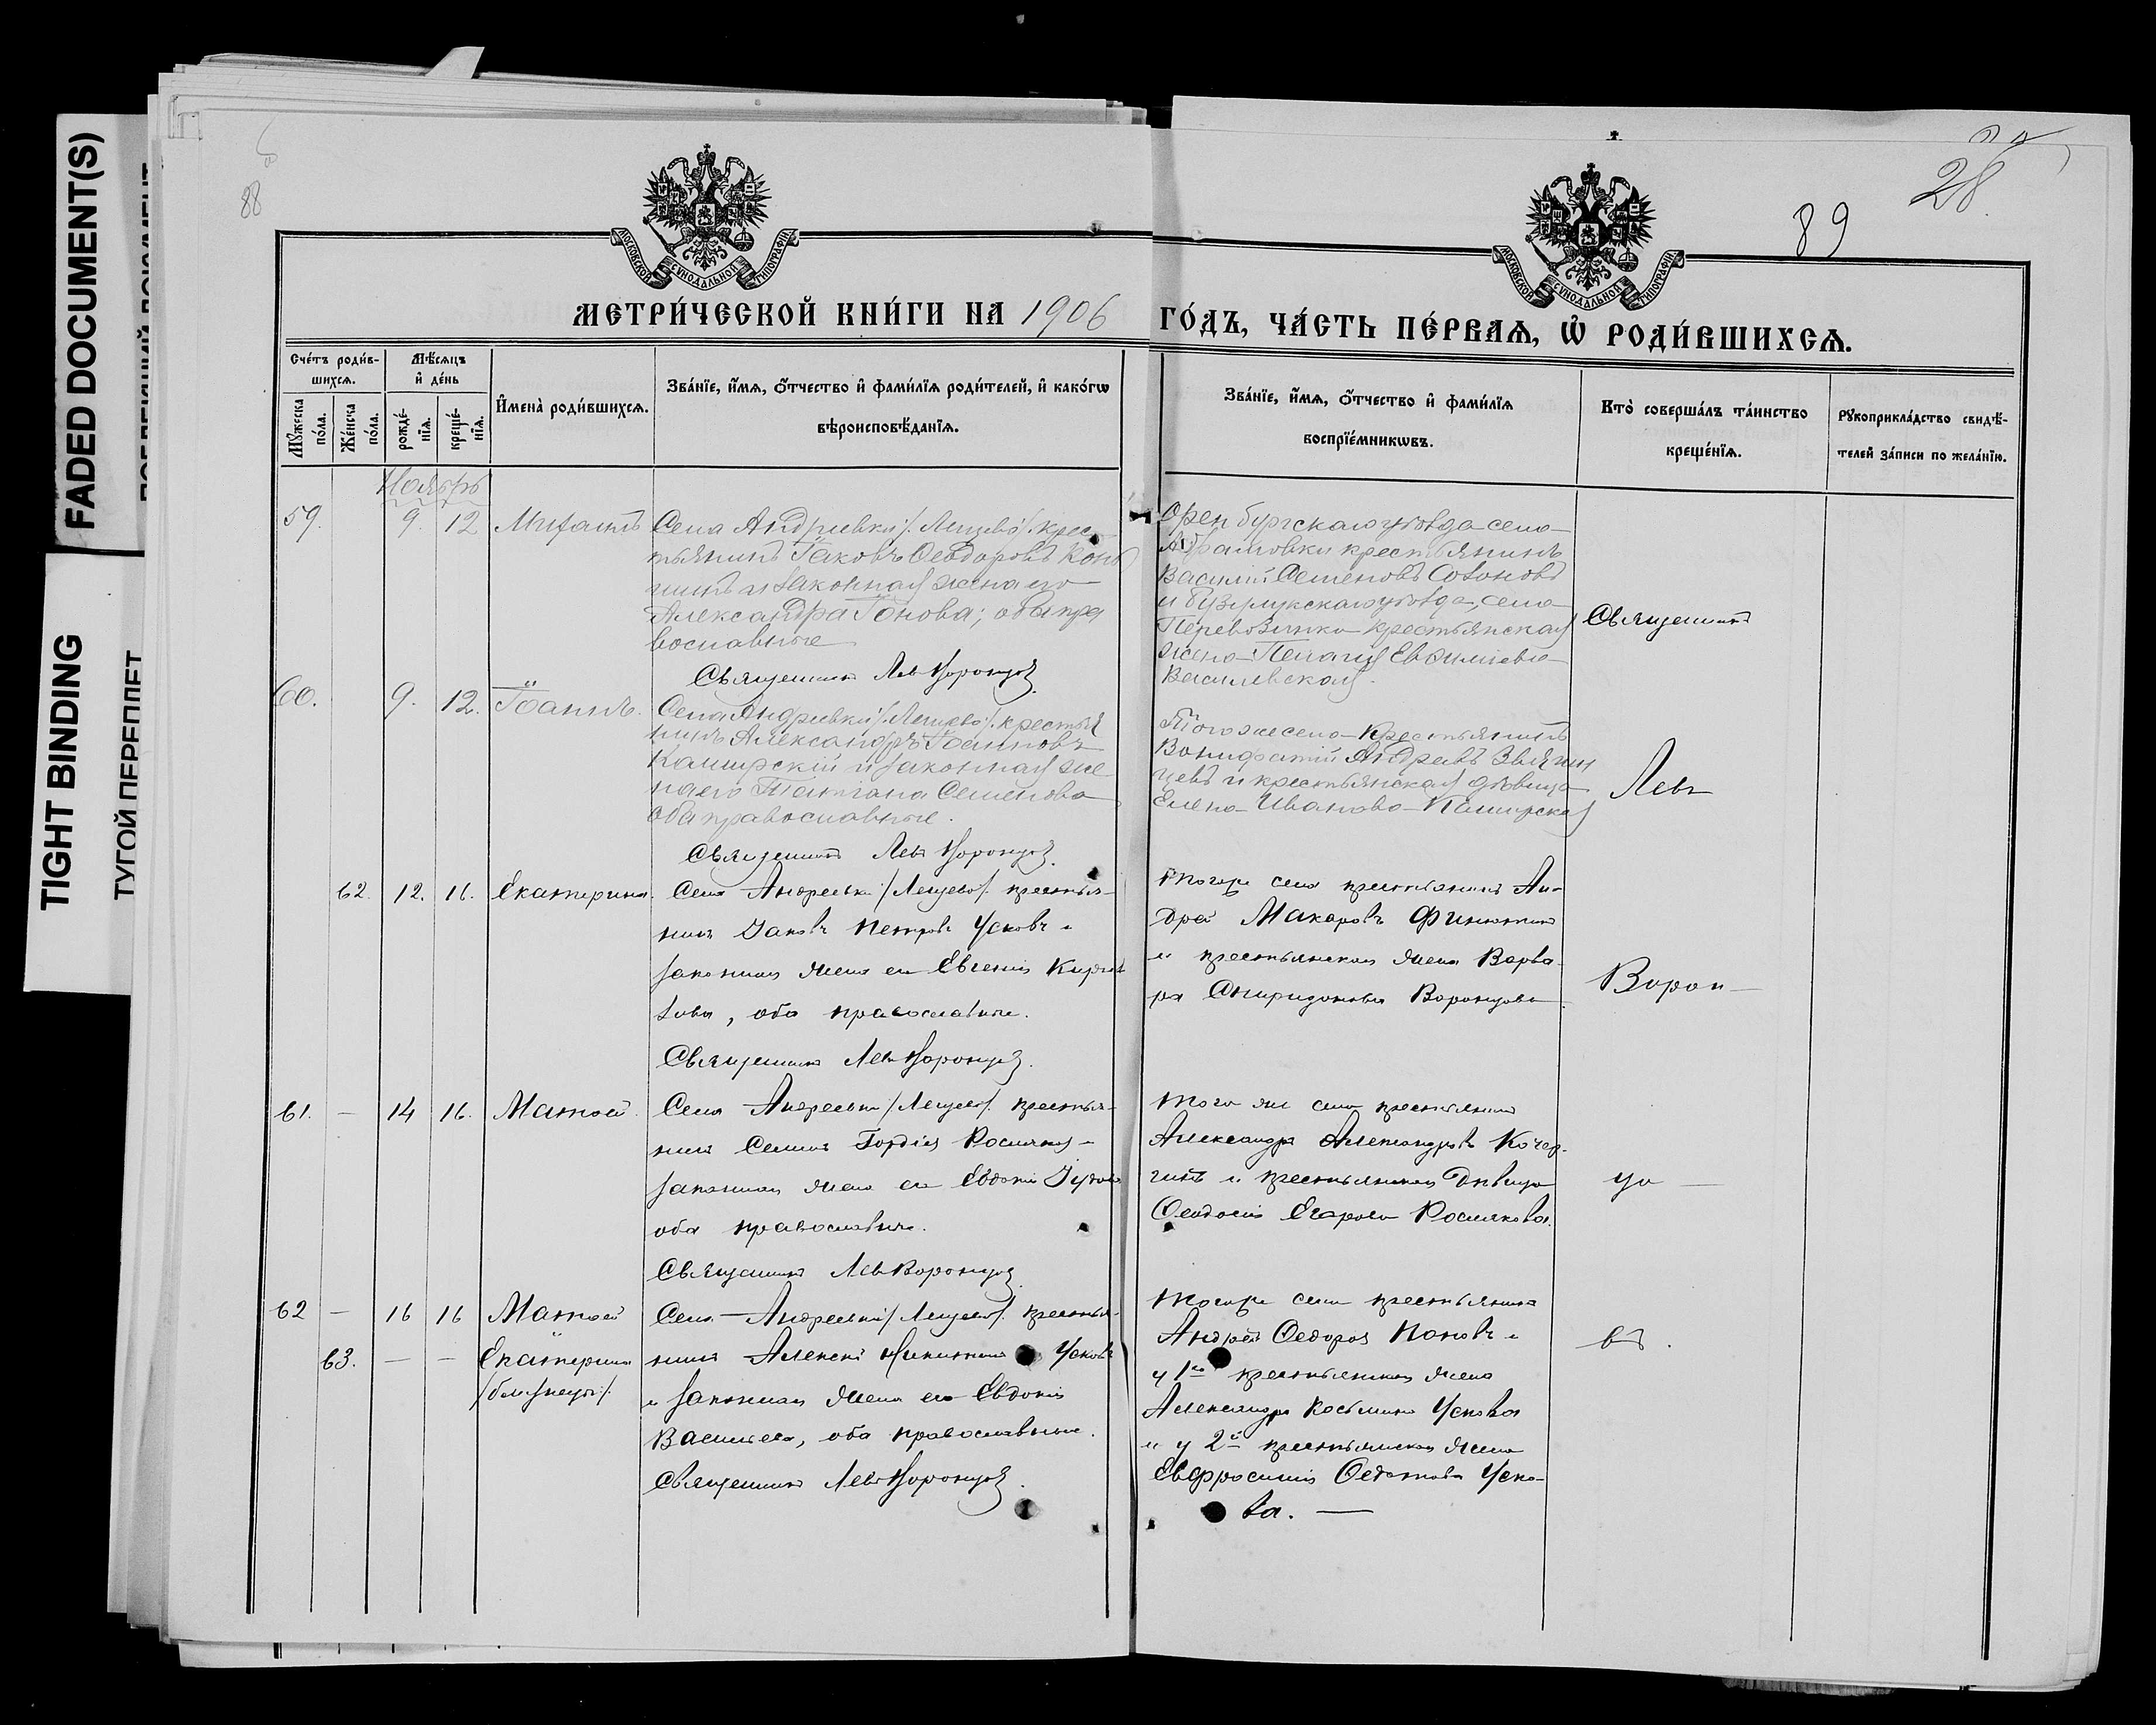 FADED DOCUMENT(S)
TIGHT BINDING
ТУГОЙ ПЕРЕПЛЕТ
88
89
28
МОСКОВСКОЙ СѴНОДАЛЬНОЙ ТИПОГРАФІИ
МОСКОВСКОЙ СѴНОДАЛЬНОЙ ТИПОГРАФІИ
МЕТРИ́ЧЕСКОЙ КНИ́ГИ НА 1906
ГО́ДЪ, ЧА́СТЬ ПЕ́РВАѦ, Ѡ҆ РОДИ́ВШИХСѦ.
Сче́тъ роди́в-
шихсѧ.
Мꙋ́жска
по́ла.
Же́нска
по́ла.
Мѣ́сѧцъ
и҆ де́нь
рожде́-
нїѧ.
креще́-
нїѧ.
И҆мена̀ роди́вшихсѧ.
Зва́нїе, и҆́мѧ, ѻ҆́тчество и҆ фами́лїѧ роди́телей, и҆ како́гѡ
вѣроисповѣ́данїѧ.
Зва́нїе, и҆́мѧ, ѻ҆́тчество и҆ фами́лїѧ
воспрїе́мникѡвъ.
Кто̀ соверша́лъ та́инство
креще́нїѧ.
Рꙋкоприкла́дство свидѣ́-
телей за́писи по жела́нїю.
Ноябрь
59. 9. 12 Михаилъ
Села Андреевки /Лещево/. крес
тьянинъ Іаковъ Ѳеодоровъ
законная жена его
Александра Іонова; оба пра
вославные
Священникъ Левъ Воронцов
Оренбургскаго уѣзда села
Абрамовки крестьянинъ
Василій Семеновъ
и Бузулукскаго уѣзда, села
Перевозинки крестьянская
жена Пелагія Евѳиміева
Василевская.
Священникъ
60. 9. 12. Іоаннъ.
Села Андреевки /Лещево/. крестья
нинъ Александръ Іоанновъ
Каширскій и законная же-
на его Татіана Семенова
оба православные.
Священникъ Левъ Воронцов
Того же села крестьянинъ
Вонифатій Андреевъ Звягин
цевъ и крестьянская дѣвица
Елена Иванова Каширская
Левъ
62. 12. 16. Екатерина.
Села Андреевки /Лещево/. крестья-
нинъ Іаковъ Петровъ Усковъ и
законная жена его Евгенія
оба православные.
Священникъ Левъ Воронцов.
Того же села крестьянинъ Ан-
дрей Макаровъ
и крестьянская жена Варва-
ра Спиридонова Воронцова.
Ворон—
61. — 14 16. Матѳей.
Села Андреевки /Лещево/. крестья-
нинъ
законная жена его Евдокія
оба православные.
Священникъ Левъ Воронцов
Того же села крестьянинъ
Александръ Александровъ Кочер-
гинъ и крестьянская дѣвица
Ѳеодосія Егорова Рослякова.
цо —
62 — 16 16 Матѳей
63. — — Екатерина
/близнецы/.
Села Андреевки /Лещево/. крестья-
нинъ Алексѣй Никитинъ Усковъ
и законная жена его Евдокія
Васильева, оба православные.
Священникъ Левъ Воронцов.
Того же села крестьянинъ
Андрей Ѳедоров Поповъ и
у 1го крестьянская жена
Александра Косьмина Ускова
и у 2й крестьянская жена
Евфросинія Ѳедотова Уско-
ва. —
въ.